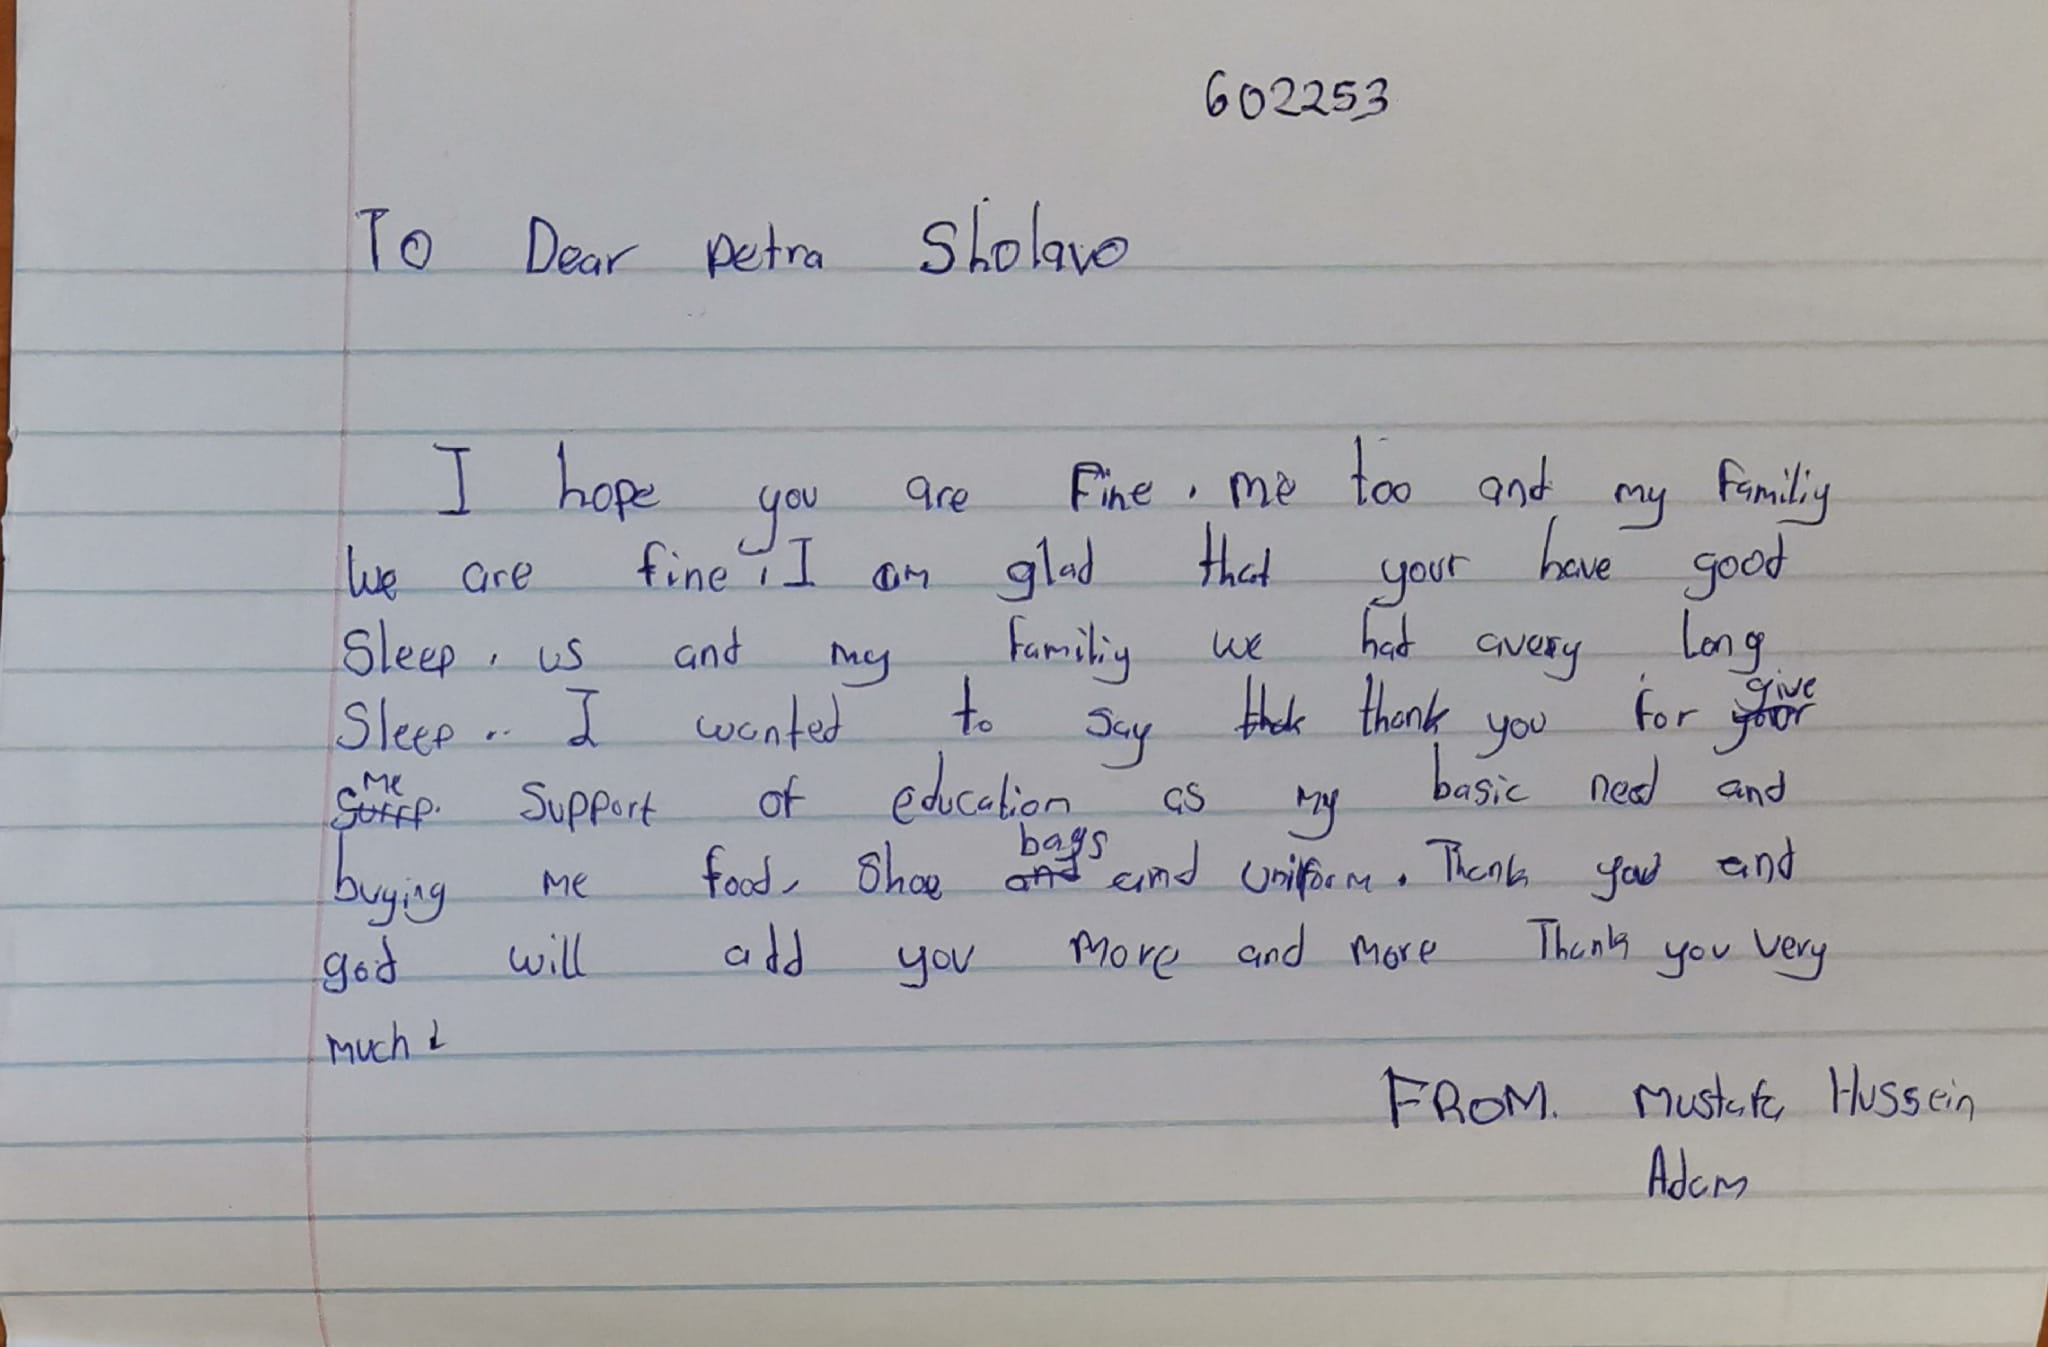 602253
To Dear petra Sholavo
I hope you are Fine. me too and my Familiy
we are fine. I am glad that your have good
Sleep. us and my familiy we had avery long
Sleep.. I wanted to say thak thank you for your give
me Support of education as my basic need and
buying me food, Shoe and bags and uniform. Thank you and
god will add you more and more Thank you very
much
FROM. Mustafa Hussein
Adam